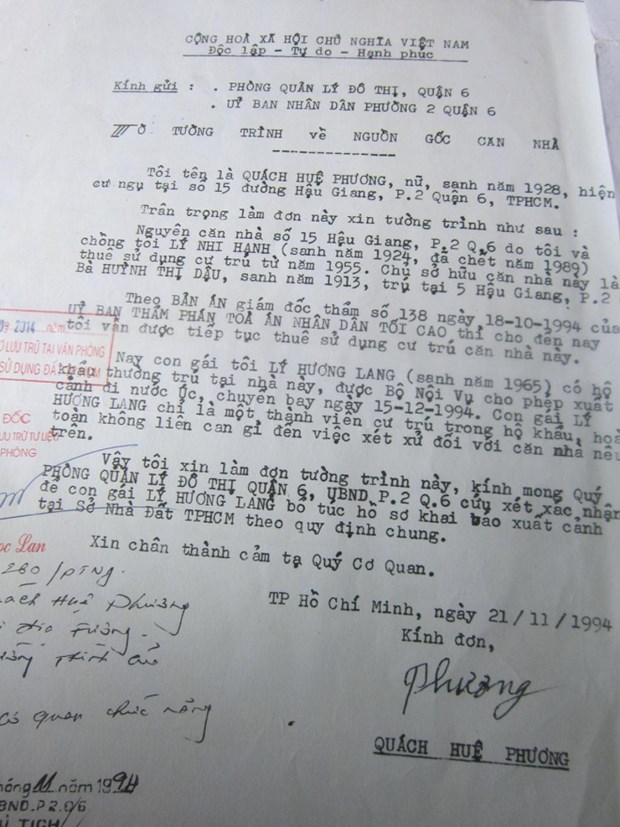 CỘNG HOÀ XÃ HỘI CHỦ NGHĨA VIỆT NAM
Độc lập - Tự do - Hạnh phúc
Kính gửi : . PHÒNG QUẢN LÝ ĐÔ THỊ, QUẬN 6
. UỶ BAN NHÂN DÂN PHƯỜNG 2 QUẬN 6
TỜ TƯỜNG TRÌNH về NGUỒN GỐC CĂN NHÀ
Tôi tên là QUÁCH HUỆ PHƯƠNG, nữ, sanh năm 1928, hiện
cư ngụ tại số 15 đường Hậu Giang, P.2 Quận 6, TPHCM.
Trân trọng làm đơn này xin tường trình như sau :
Nguyên căn nhà số 15 Hậu Giang, P.2 Q.6 do tôi và
chồng tôi LÝ NHI HẠNH (sanh năm 1924, đã chết năm 1989)
thuê sử dụng cư trú từ năm 1955. Chủ sở hữu căn nhà này là
Bà HUỲNH THỊ DẬU, sanh năm 1913, trú tại 5 Hậu Giang, P.2
Theo BẢN ÁN giám đốc thẩm số 138 ngày 18-10-1994 của
UỶ BAN THẨM PHÁN TOÀ ÁN NHÂN DÂN TỐI CAO thì cho đến nay
tôi vẫn được tiếp tục thuê sử dụng cư trú căn nhà này.
Nay con gái tôi LÝ HƯƠNG LANG (sanh năm 1965) có hộ
khẩu thường trú tại nhà này, được Bộ Nội Vụ cho phép xuất
cảnh đi nước Úc, chuyến bay ngày 15-12-1994. Con gái LÝ
HƯƠNG LANG chỉ là một thành viên cư trú trong hộ khẩu, hoàn
toàn không liên can gì đến việc xét xử đối với căn nhà nêu
trên.
Vậy tôi xin làm đơn tường trình này, kính mong Quý
PHÒNG QUẢN LÝ ĐÔ THỊ QUẬN 6, UBND P.2 Q.6 cứu xét xác nhận
để con gái LÝ HƯƠNG LANG bổ túc hồ sơ khai báo xuất cảnh
tại Sở Nhà Đất TPHCM theo quy định chung.
Xin chân thành cảm tạ Quý Cơ Quan.
TP Hồ Chí Minh, ngày 21/11/1994
Kính đơn,
Phương
QUÁCH HUỆ PHƯƠNG
2014 năm
LƯU TRỮ TẠI VĂN PHÒNG
SỬ DỤNG ĐẤT
ĐỐC
LƯU TRỮ TƯ LIỆU
PHÒNG
Lan
280/PTNg.
Huệ Phương
cơ quan chức năng
tháng 11 năm 1994
UBND.P2.Q/6
CHỦ TỊCH